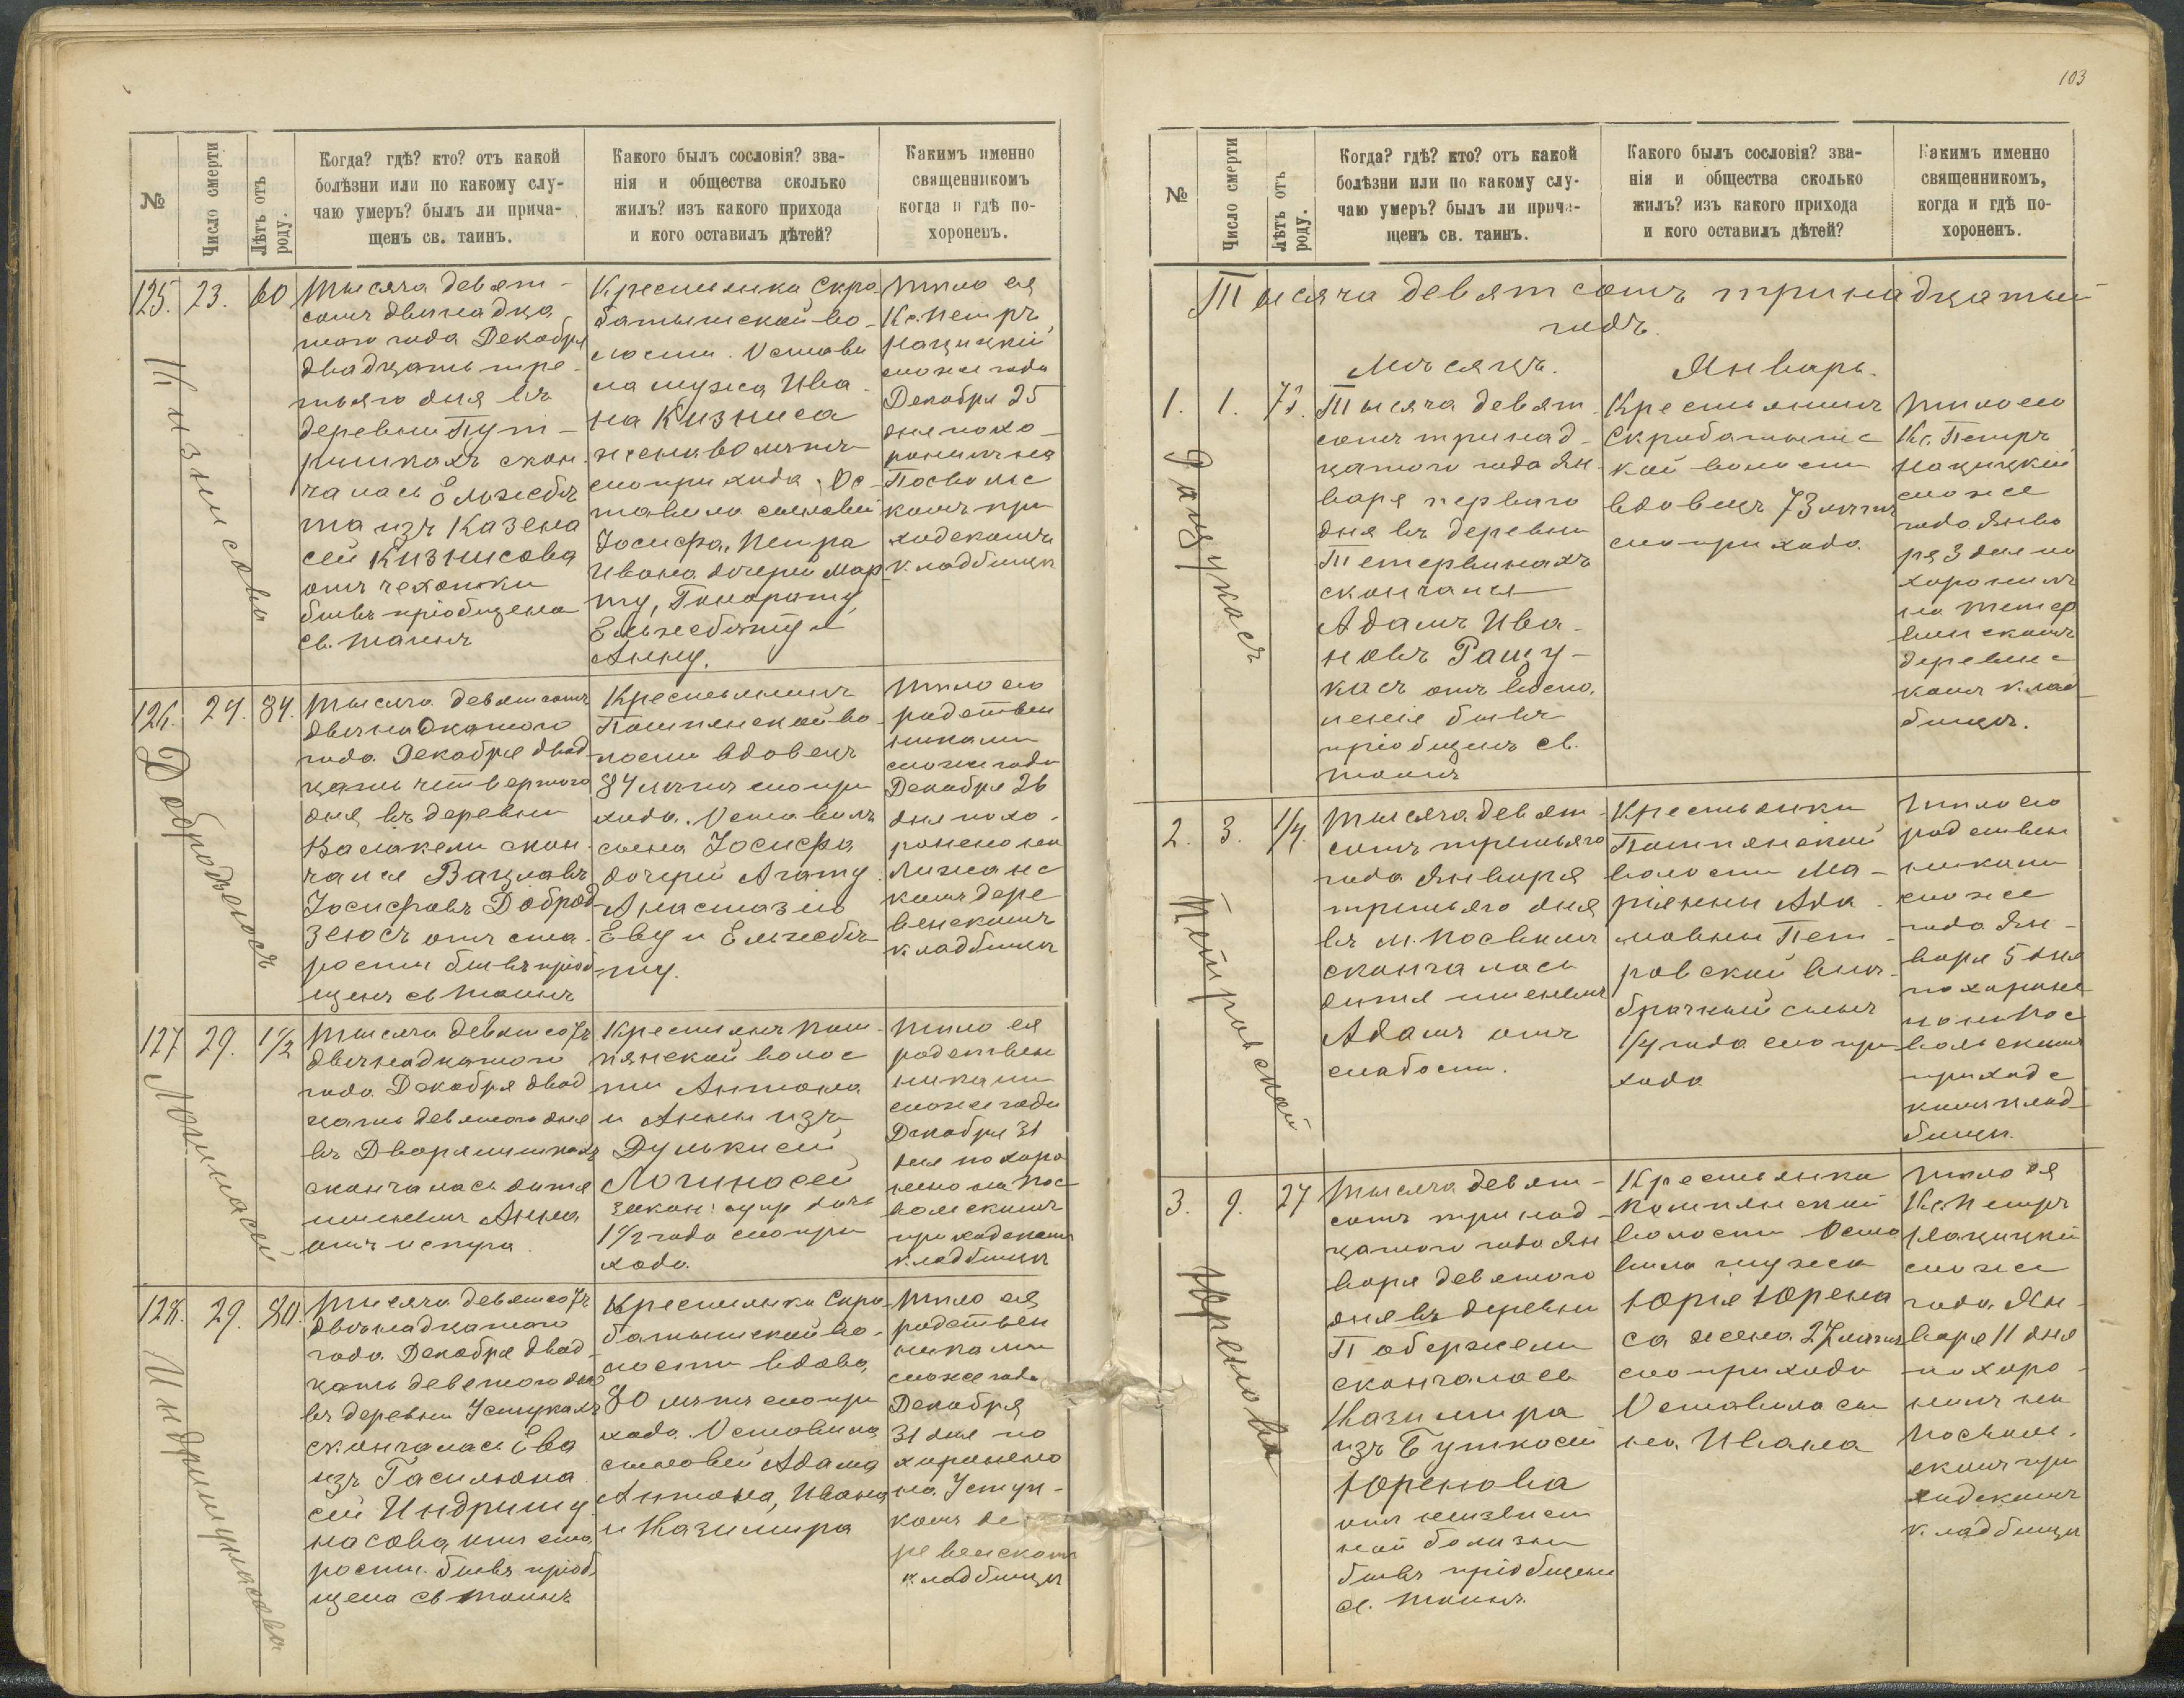 103
№
Число смерти
Лѣтъ отъ роду.
Когда? гдѣ? кто? отъ какой
болѣзни или по какому слу-
чаю умеръ? былъ ли прича-
щенъ св. таинъ.
Какого былъ сословія? зва-
нія и общества сколько
жилъ? изъ какого прихода
и кого оставилъ дѣтей?
Какимъ именно
священникомъ
когда и гдѣ по-
хороненъ.
125. 23. 60
Кизнисова
Тысяча девят-
сотъ двѣнадца
таго года Декабря
двадцать тре-
тьяго дня въ
деревни
скон
чалась Ельжебѣ
та изъ Казена
сей Кизнисова
отъ чехотки
бывъ пріобщена
св. таинъ
Крестьянка Скро
батышской во-
лости. Остави
ла мужа Ива-
на Кизниса
сего прихода. Ос-
тавила сыновей
Іосифа, Петра
Ивана дочерей Мар
ту, Гонорату,
Ельжебѣту и
Анну.
Тѣло ея
Кс. Петръ
Нацицкій
сего же года
Декабря 25
дня похо-
ронилъ на
Посвольс
комъ при
ходскомъ
кладбищѣ
126. 24. 84.
Тысяча девятсотъ
двѣнадцатого
года Декабря двад
цать четвертого
дня въ деревни
скон
чался Вацлавъ
Іосифовъ Доброд
зеюсъ отъ ста
рости бывъ пріоб
щенъ св таинъ
Крестьянинъ
Помпянской во
лости вдовецъ
84 лѣтъ сего при
хода. Оставилъ
сына Іосифа
дочерей Агату
Анастазію
Еву и Ельжебѣ
ту.
Тѣло его
родствен
никами
сего же года
Декабря 26
дня похо-
ронено на
дере
венскомъ
кладбищѣ
127 29. 1½
Тысяча девятсотъ
двѣнадцатого
года Декабря двад
цать девятого дня
въ Дворянишкахъ
скончалась дитя
именемъ Анна
отъ испуга.
Крестьянъ Пом-
пянской волос
ти Антона
и Анны изъ
Дулькисей
закон: супр дочь
1½ года сего при
хода.
Тѣло ея
родствен
никами
сего же года
Декабря 31
дня похоро
нено на Пос
вольскомъ
приходскомъ
кладбищѣ
128. 29. 80.
Тысяча девятсотъ
двѣнадцатого
года Декабря двад-
цать девятого дня
въ деревни Устукахъ
скончалась Ева
изъ Гасилюна
сей Индришу
насова, отъ ста
рости. бывъ пріоб
щена св таинъ
Крестьянка Скро
батышской во-
лости вдова,
80 лѣтъ сего при
хода. Оставила
сыновей Адама
Антона, Ивана
и Казимира
Тѣло ея
родствен
никами
сего же года
Декабря
31 дня по
хоронено
на Устук-
комъ де
ревенскомъ
кладбищѣ
№
Число смерти
Лѣтъ отъ роду.
Когда? гдѣ? кто? отъ какой
болѣзни или по какому слу-
чаю умеръ? былъ ли прича-
щенъ св. таинъ.
Какого былъ сословія? зва-
нія и общества сколько
жилъ? изъ какого прихода
и кого оставилъ дѣтей?
Какимъ именно
священникомъ,
когда и гдѣ по-
хороненъ.
Тысяча девятсотъ тринадцатый
годъ.
Мѣсяцъ. Январь.
1. 1. 73.
Тысяча девят
сотъ тринад-
цатого года Ян-
варя перваго
дня въ деревни
Тетервинахъ
скончался
Адамъ Ива-
новъ Рашу-
касъ отъ воспа
ленія бывъ
пріобщенъ св.
таинъ
Крестьянинъ
Скробатышс
кой волости
вдовецъ 73 лѣтъ
сего прихода.
Тѣло его
Кс. Петръ
Нацицкій
сего же
года Янва
ря 3 дня по
хоронилъ
на Тетер
винскомъ
деревенс
комъ клад
бищѣ.
2. 3. 1/4.
Петровской
Тысяча девят
сотъ третьяго
года Января
третьяго дня
въ м. Посволѣ
скончалось
дитя именемъ
Адамъ отъ
слабости.
Крестьянки
Помпянской
волости Ма-
ріянны Ада
мовны Пет-
ровской внѣ-
брачный сынъ
1/4 года сего при
хода
Тѣло его
родствен
никами
сего же
года Ян-
варя 5 дня
похороне
но на Пос
вольскомъ
приходс
комъ клад
бищѣ.
3. 9. 27
Юренова
Тысяча девят-
сотъ тринад-
цатого года Ян
варя девятого
дня въ деревни
Побержели
скончалась
Казимира
изъ Буткосей
Юренова
отъ неизвѣст
ной болѣзни
бывъ пріобщена
св. таинъ.
Крестьянка
Помпянской
волости Оста
вила мужа
Юрія Юрена
са жена 27 лѣтъ
сего прихода
Оставила сы
на Ивана
Тѣло ея
Кс. Петръ
Нацицкій
сего же
года Ян-
варя 11 дня
похоро-
нилъ на
Посволь-
скомъ при
ходскомъ
кладбищѣ